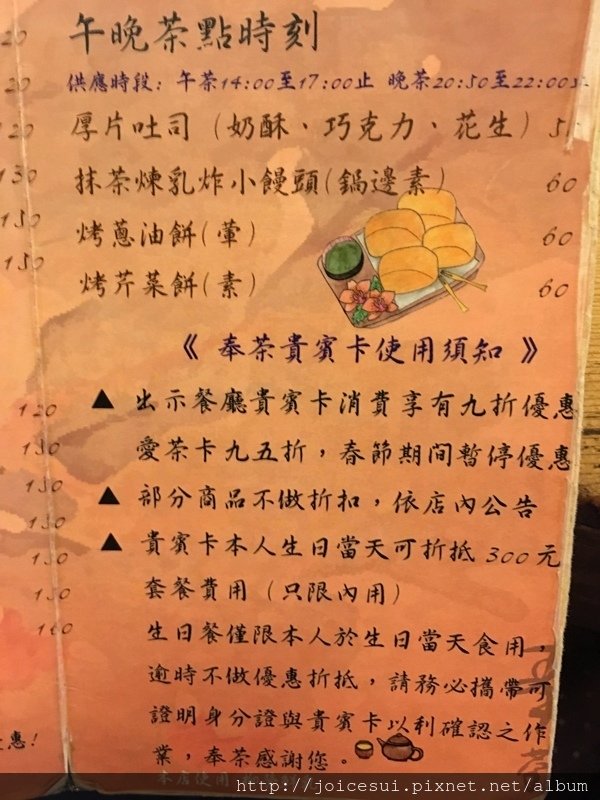 午晚茶點時刻
供應時段：午茶14:00至17:00止 晚茶20:30至22:00
厚片吐司（奶酥、巧克力、花生）
抹茶煉乳炸小饅頭(鍋邊素) 60
烤蔥油餅(葷) 60
烤芹菜餅(素) 60
《 奉茶貴賓卡使用須知 》
▲ 出示餐廳貴賓卡消費享有九折優惠
愛茶卡九五折，春節期间暫停優惠
▲ 部分商品不做折扣，依店內公告
▲ 貴賓卡本人生日當天可折抵 300 元
套餐費用（只限內用）
生日餐僅限本人於生日當天食用，
逾時不做優惠折抵，請務必攜帶可
證明身分證與貴賓卡以利確認之作
業，奉茶感謝您。
20
20
120
130
150
150
120
130
150
150
150
150
160
惠!
http://joicesui.pixnet.net/album